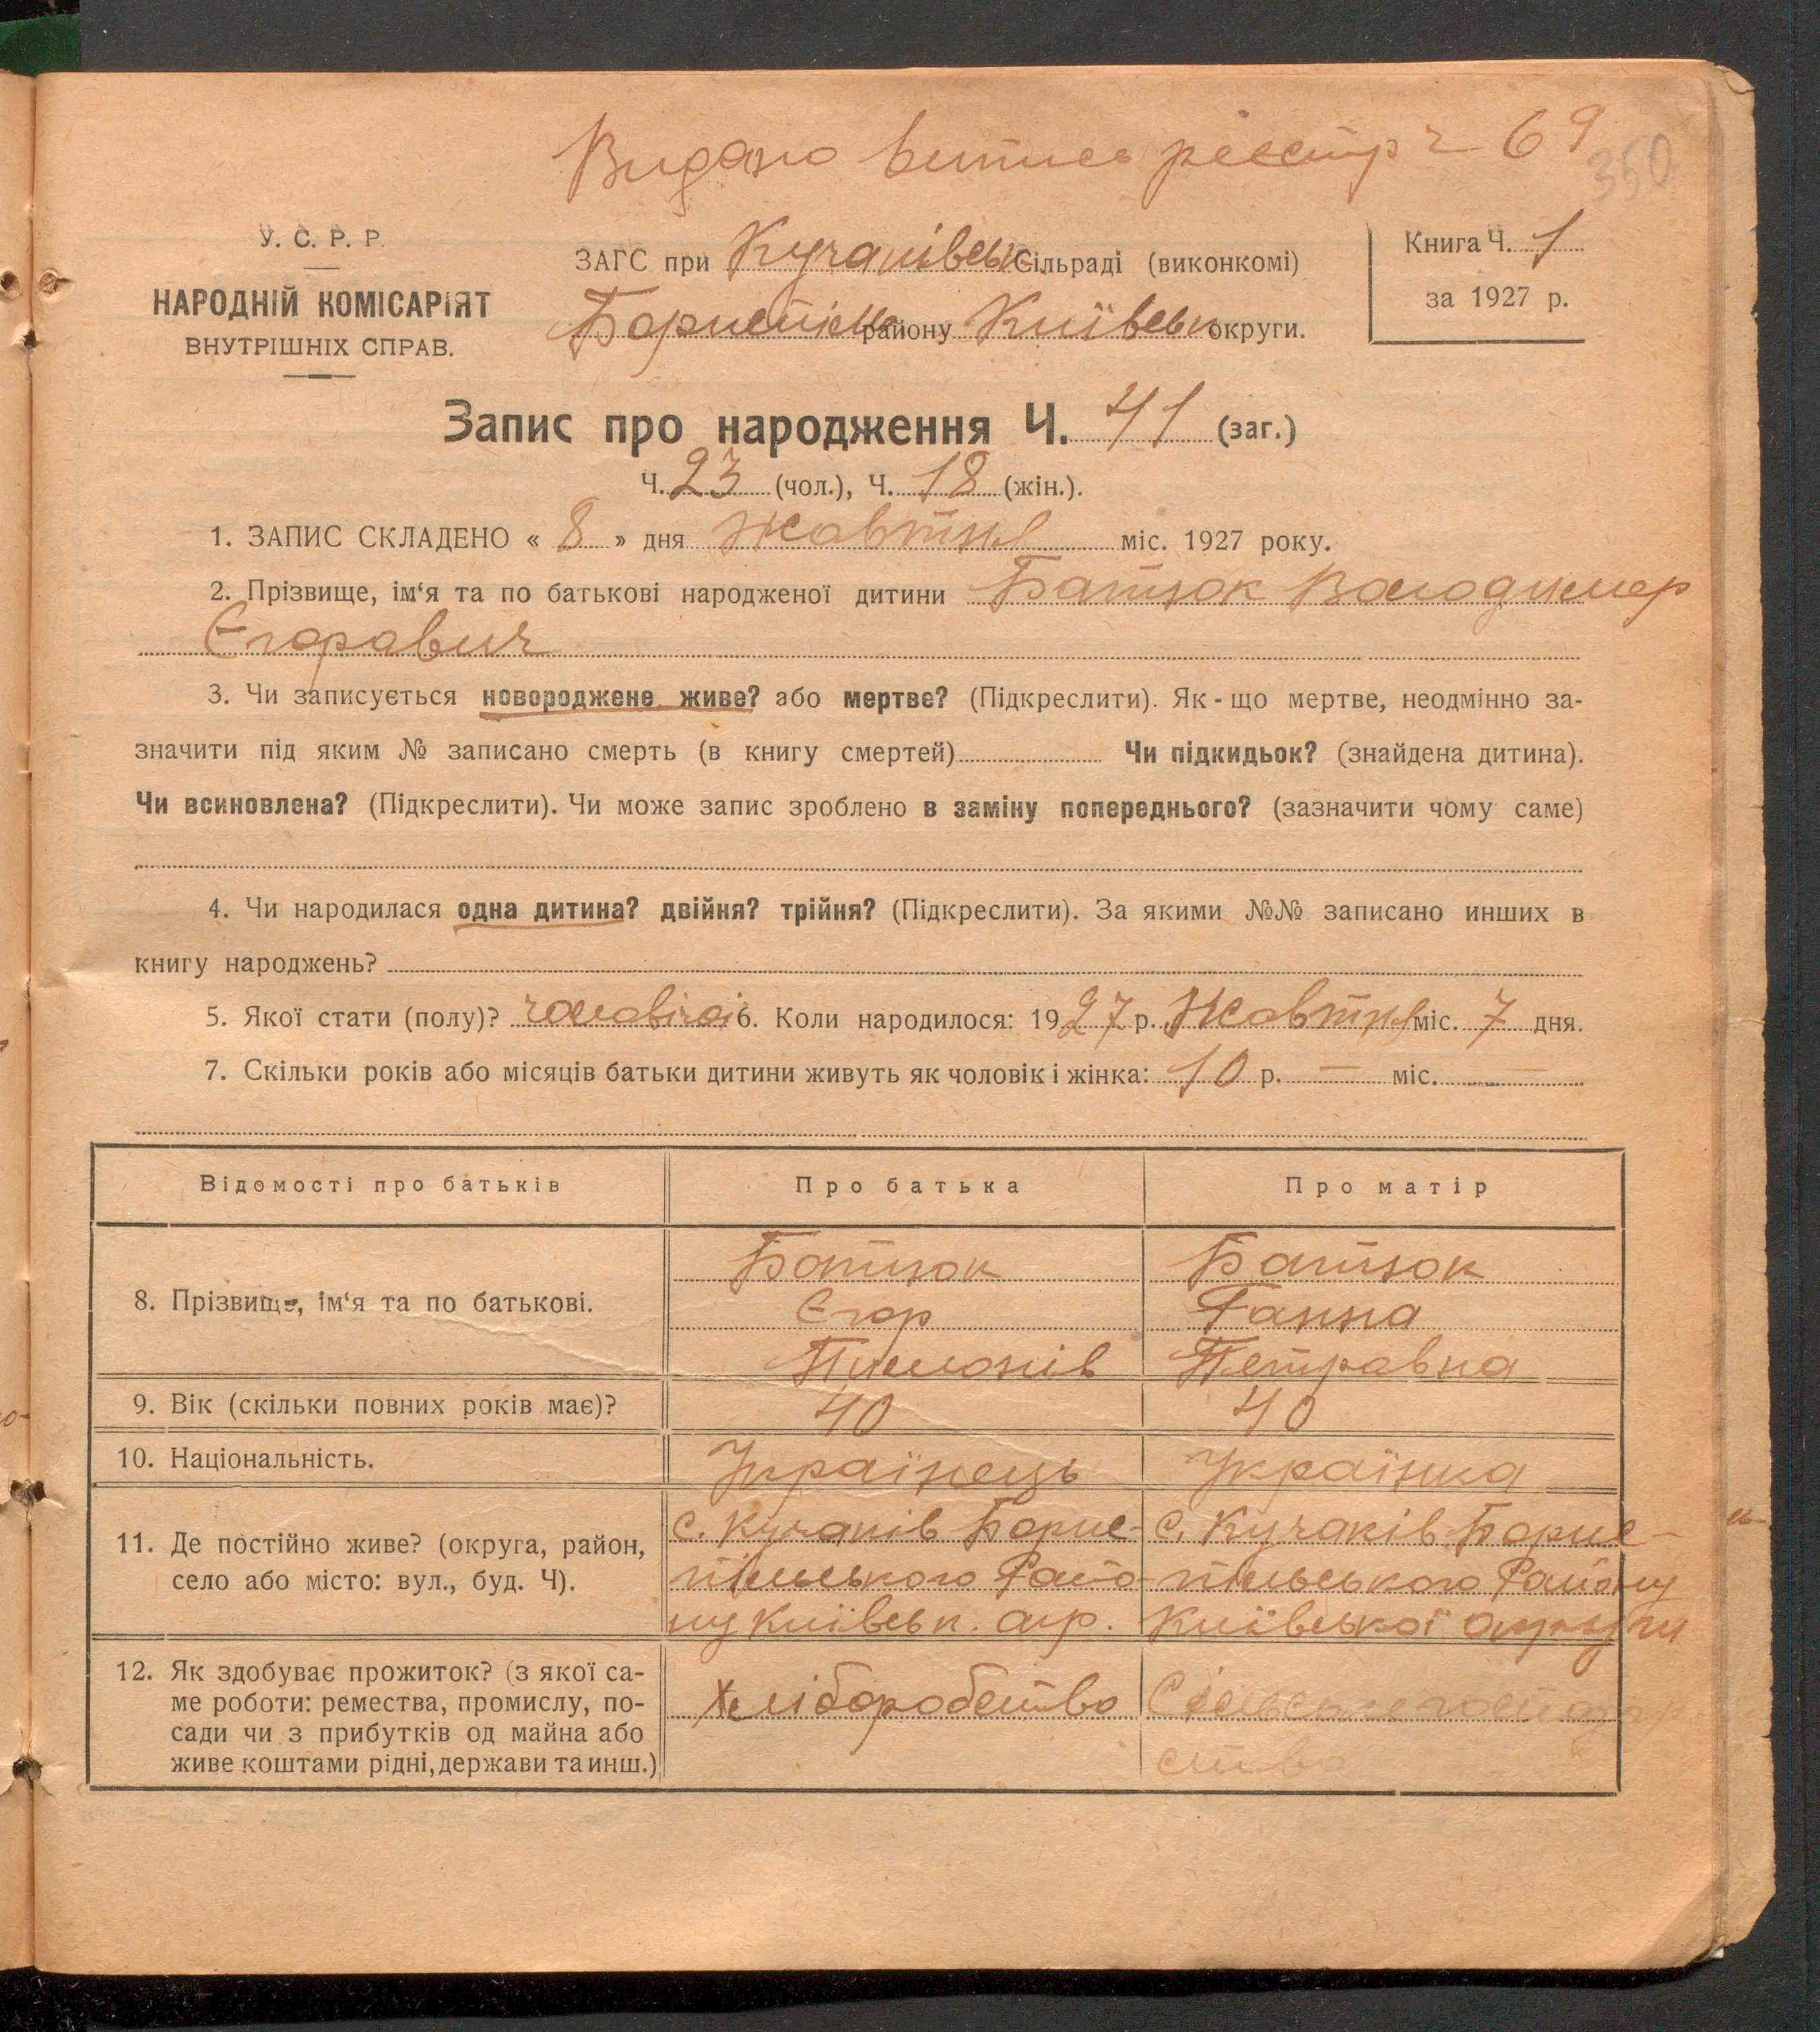 Видано витись реєстр ч 69
350
У. С. Р. Р.
НАРОДНІЙ КОМІСАРІЯТ
ВНУТРІШНІХ СПРАВ.
ЗАГС при Кучаківськ. Сільраді (виконкомі)
району Київськ округи.
Книга Ч. 1
за 1927 р.
Запис про народження Ч. 41 (заг.)
Ч. 23 (чол.), Ч. 18 (жін.).
1. ЗАПИС СКЛАДЕНО « 8 » дня Жавтня міс. 1927 року.
2. Прізвище, ім‘я та по батькові народженої дитини Батюк Володимер
Єгоравич
3. Чи записується новороджене живе? або мертве? (Підкреслити). Як - що мертве, неодмінно за-
значити під яким № записано смерть (в книгу смертей) Чи підкидьок? (знайдена дитина).
Чи всиновлена? (Підкреслити). Чи може запис зроблено в заміну попереднього? (зазначити чому саме)
4. Чи народилася одна дитина? двійня? трійня? (Підкреслити). За якими №№ записано инших в
книгу народжень?
5. Якої стати (полу)? 6. Коли народилося: 1927 р. Жавтня міс. 7 дня.
7. Скільки років або місяців батьки дитини живуть як чоловік і жінка: 10 р. — міс. —
Відомості про батьків Про батька Про матір
8. Прізвище, ім‘я та по батькові.
Батюк Батюк
Єгор Ганна
Пимонів Петравна
9. Вік (скільки повних років має)? 40 40
10. Національність. Українець Українка
11. Де постійно живе? (округа, район,
село або місто: вул., буд. Ч).
с. Кучаків Борис- с. Кучаків Борис-
пільського Райо- пільського Району
ну Київськ. окр. Київської округи
12. Як здобуває прожиток? (з якої са-
ме роботи: ремества, промислу, по-
сади чи з прибутків од майна або
живе коштами рідні, держави та инш.)
Хліборобство
ство